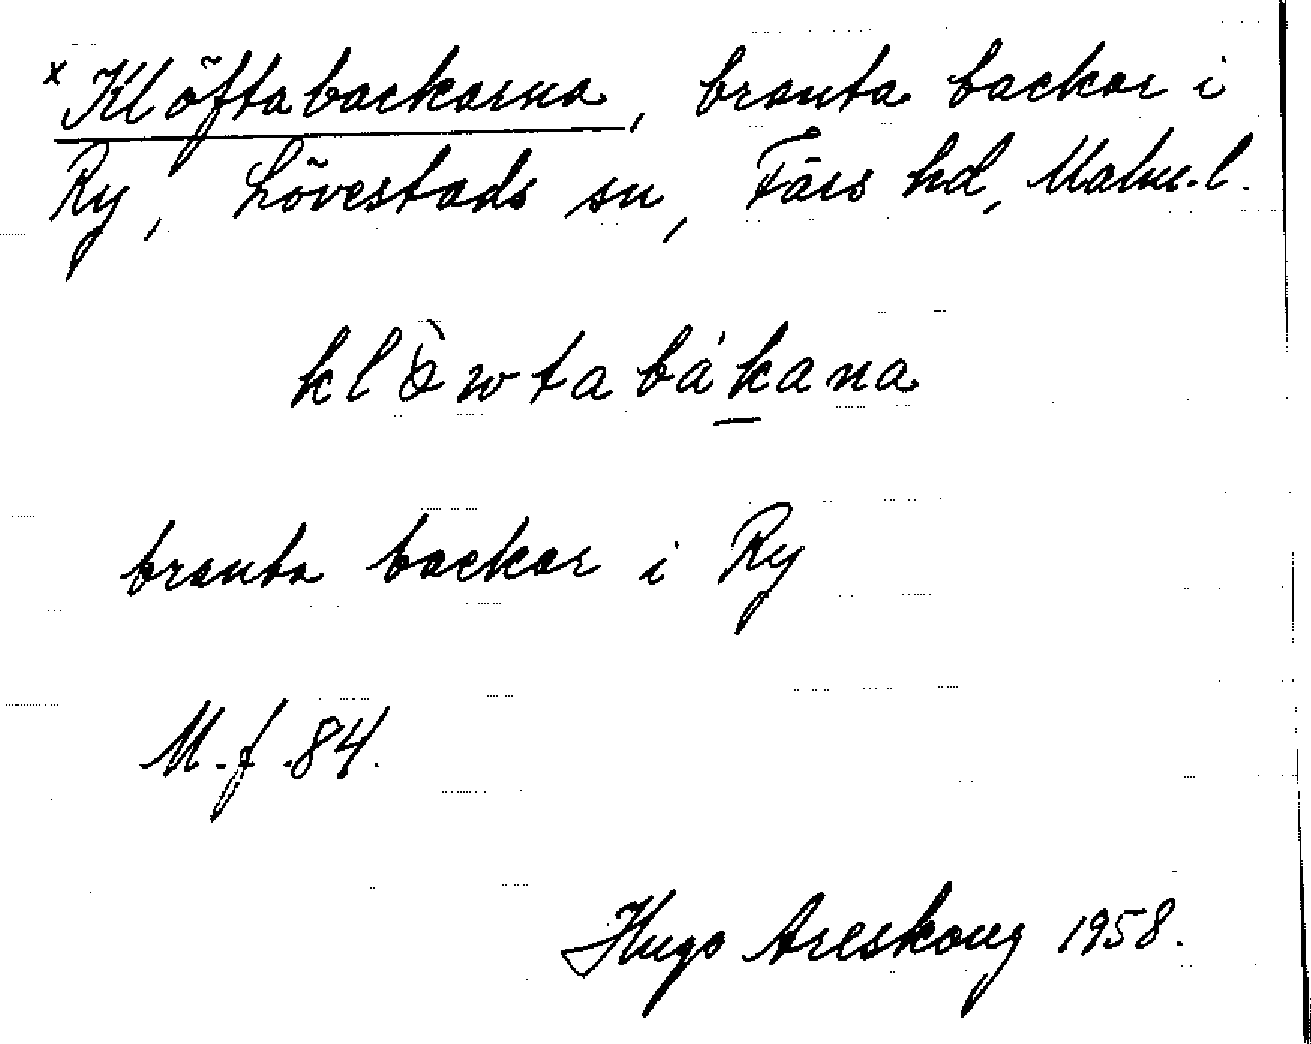 x Klöftabackarna, branta backar i
Ry, Lövestads sn, Färs hd, Malm.l.
klöwtabákana
branta backar i Ry
M.f.84.
Hugo Areskoug 1958.